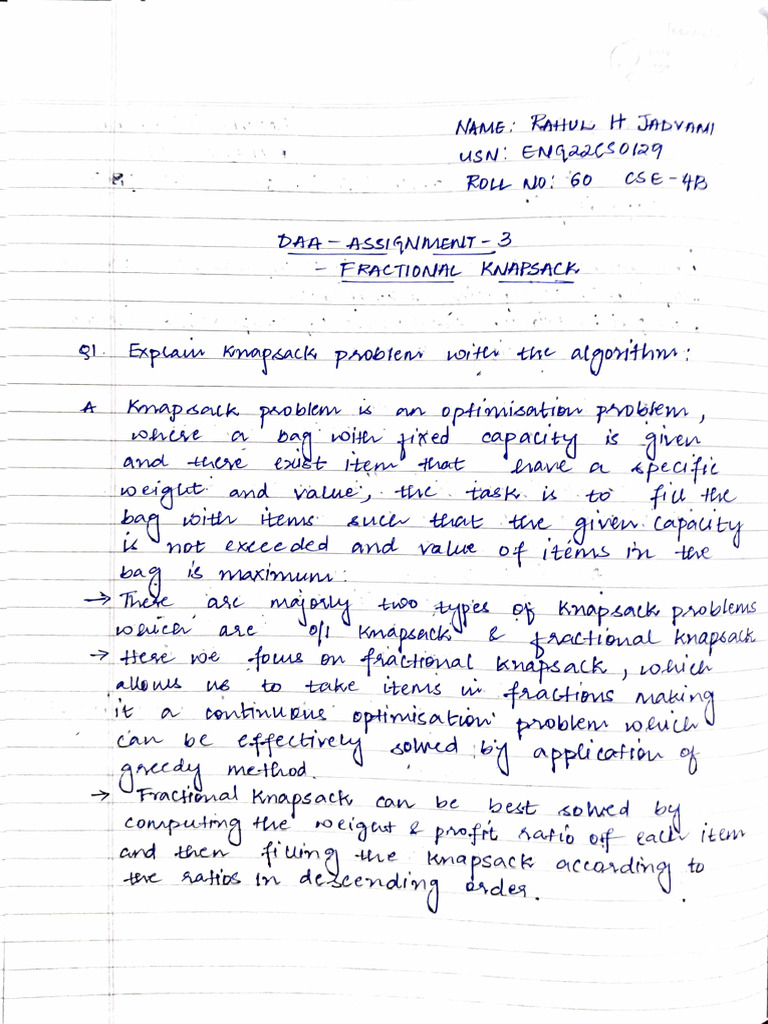 NAME: RAHUL H JADVANI
USN: ENG22CS0129
ROLL NO: 60 CSE-4B
DAA-ASSIGNMENT-3
- FRACTIONAL KNAPSACK
Q1. Explain Knapsack problem with the algorithm:
A Knapsack problem is an optimisation problem,
where a bag with fixed capacity is given
and there exist item that have a specific
weight and value, the task is to fill the
bag with items such that the given capacity
is not exceeded and value of items in the
bag is maximum:
→ There are majorly two types of Knapsack problems
which are 0/1 Knapsack & fractional Knapsack
→ Here we focus on fractional Knapsack, which
allows us to take items in fractions making
it a continuous optimisation problem which
can be effectively solved by application of
greedy method.
→ Fractional Knapsack can be best solved by
computing the weight & profit ratio of each item
and then filling the Knapsack according to
the ratios in descending order.